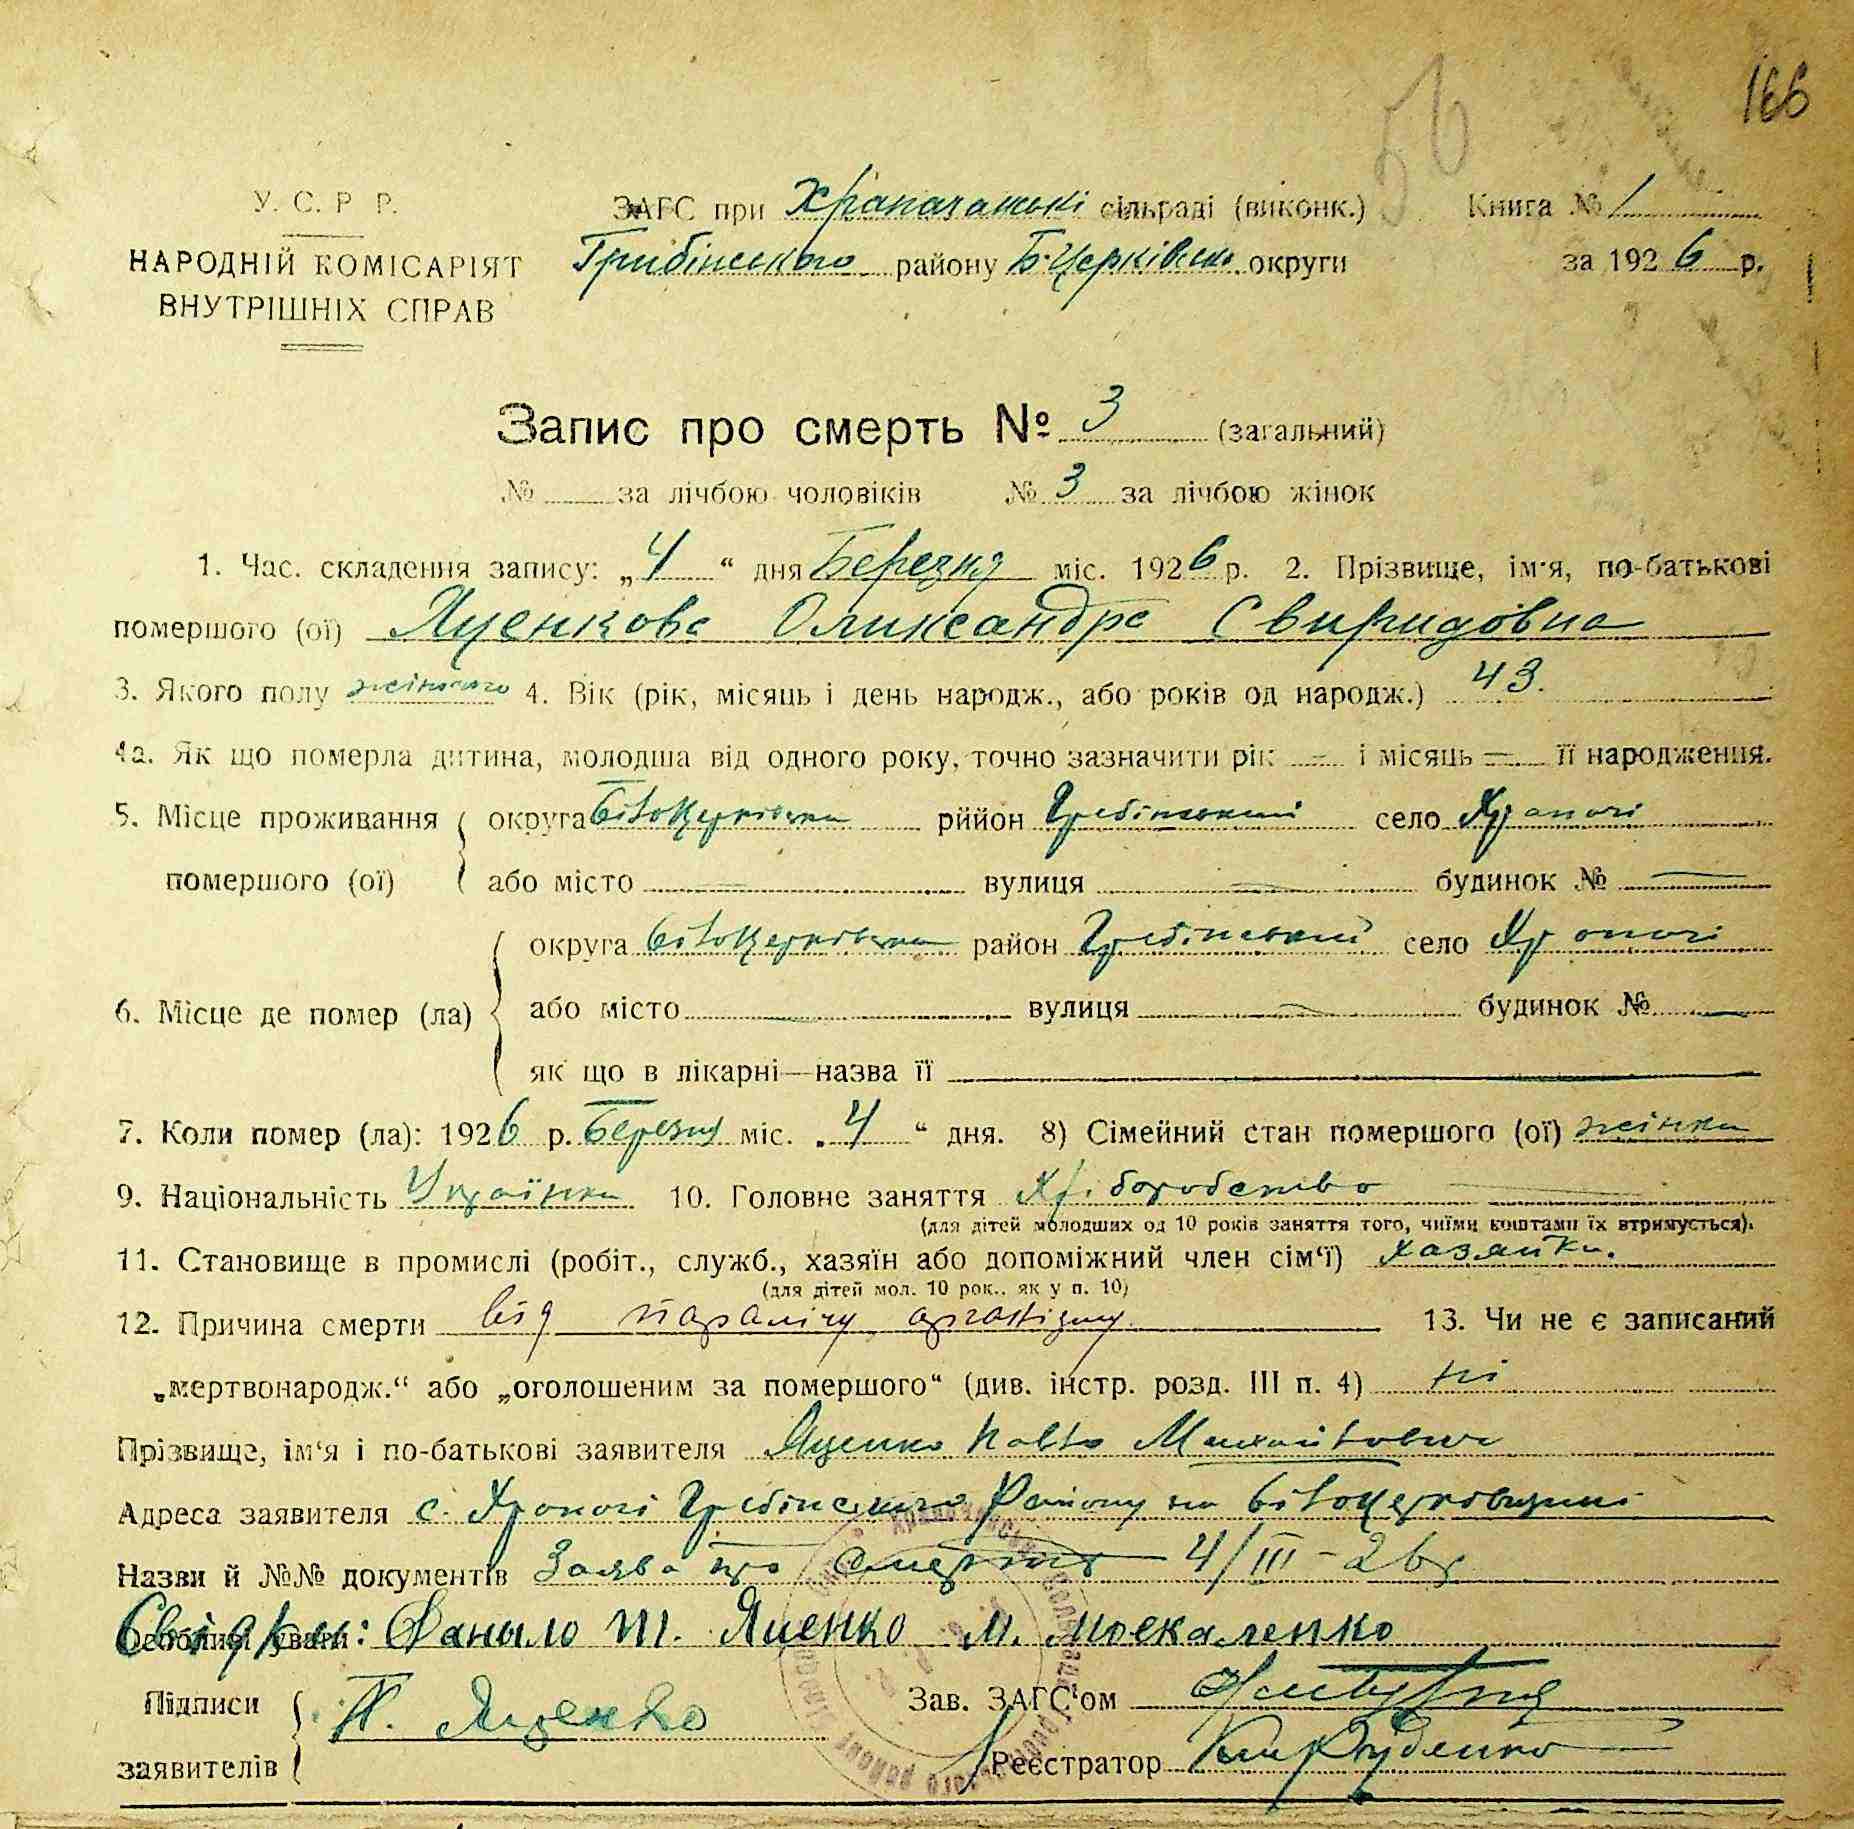 166
56
У. С. Р Р.
ЗАГС при Храпачанські сільраді (виконк.)
Книга № 1
НАРОДНІЙ КОМІСАРІЯТ
ВНУТРІШНІХ СПРАВ
Грибінського району Б-Церківськ. округи
за 1926 р.
Запис про смерть № 3 (загальний)
№ за лічбою чоловіків № 3 за лічбою жінок
1. Час. складення запису: „4“ дня Березня міс. 1926 р. 2. Прізвище, ім'я, по-батькові
помершого (ої) Яценкова Оликсандра Свиридовна
3. Якого полу жіночого 4. Вік (рік, місяць і день народж., або років од народж.) 43.
4а. Як що померла дитина, молодша від одного року, точно зазначити рік — і місяць — її народження.
5. Місце проживання помершого (ої)
округа Білоцерківська рййон Гребінський село Храпачі
або місто — вулиця — будинок № —
6. Місце де помер (ла)
округа Білоцерківська район Гребінський село Храпачі
або місто — вулиця — будинок № —
як що в лікарні—назва її
7. Коли помер (ла): 1926 р. Березня міс. „4“ дня. 8) Сімейний стан помершого (ої) жінка
9. Національність Українка 10. Головне заняття Хліборобство
(для дітей молодших од 10 років заняття того, чиїми коштами їх втримується).
11. Становище в промислі (робіт., служб., хазяїн або допоміжний член сім'ї) хазяйка.
(для дітей мол. 10 рок.. як у п. 10)
12. Причина смерти від параліч організму 13. Чи не є записаний
„мертвонародж.“ або „оголошеним за помершого“ (див. інстр. розд. III п. 4) ні
Прізвище, ім'я і по-батькові заявителя Яценко Павло Михайлович
Адреса заявителя с. Храпачі Гребінського Району на Білоцерківщині
Назви й №№ документів Заява про смерть 4/III-26р
Свідки: Данило М. Яценко М. Москаленко
Підписи заявителів П. Яценко
Зав. ЗАГС'ом
Реєстратор Руденко